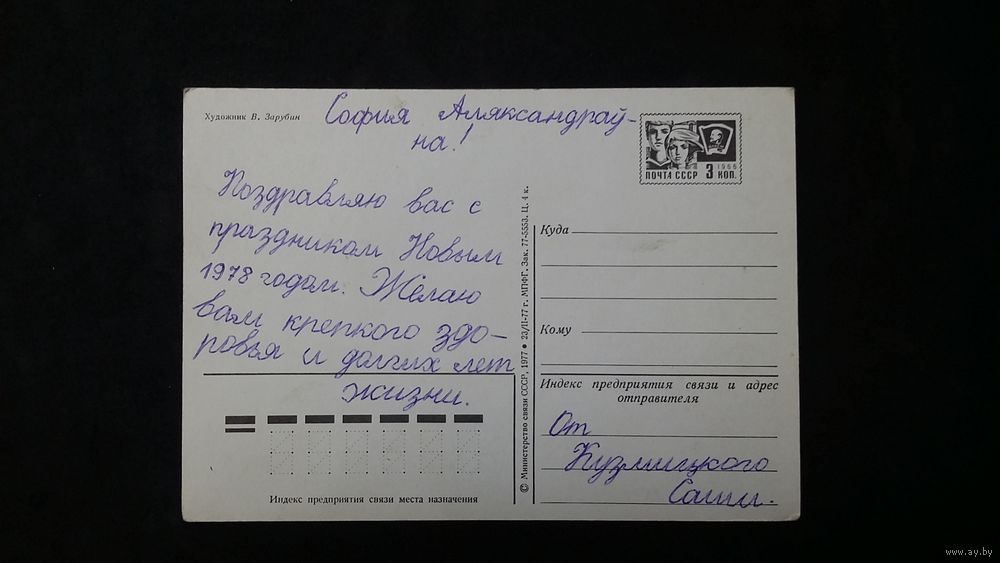 Художник В. Зарубин
София Аляксандраў-
на!
Поздравляю вас с
праздником Новым
1978 годом. Желаю
вам крепкого здо-
ровья и долгих лет
жизни.
Индекс предприятия связи места назначения
© Министерство связи СССР, 1977 • 23/II-77 г. МПФГ. Зак. 77-5553. Ц. 4 к.
1966
ПОЧТА СССР 3 КОП.
Куда
Кому
Индекс предприятия связи и адрес
отправителя
От
Кузмицкого
Саши.
www.ay.by